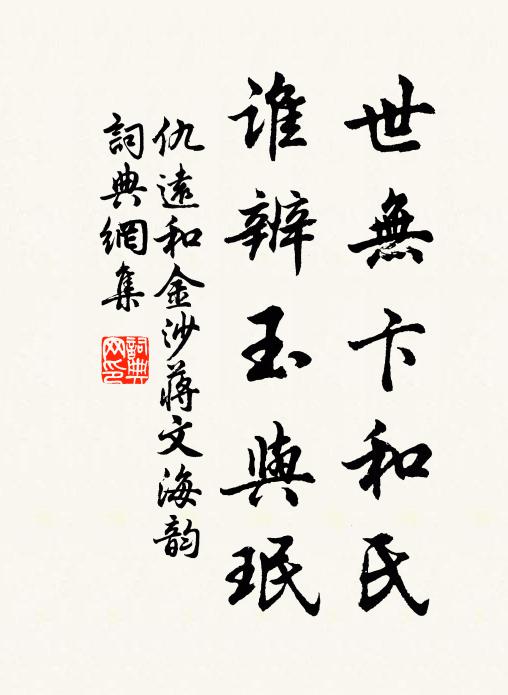 世無卞和氏
誰辨玉與珉
仇遠和金沙蔣文海韵
詞典網集
詞典
网印